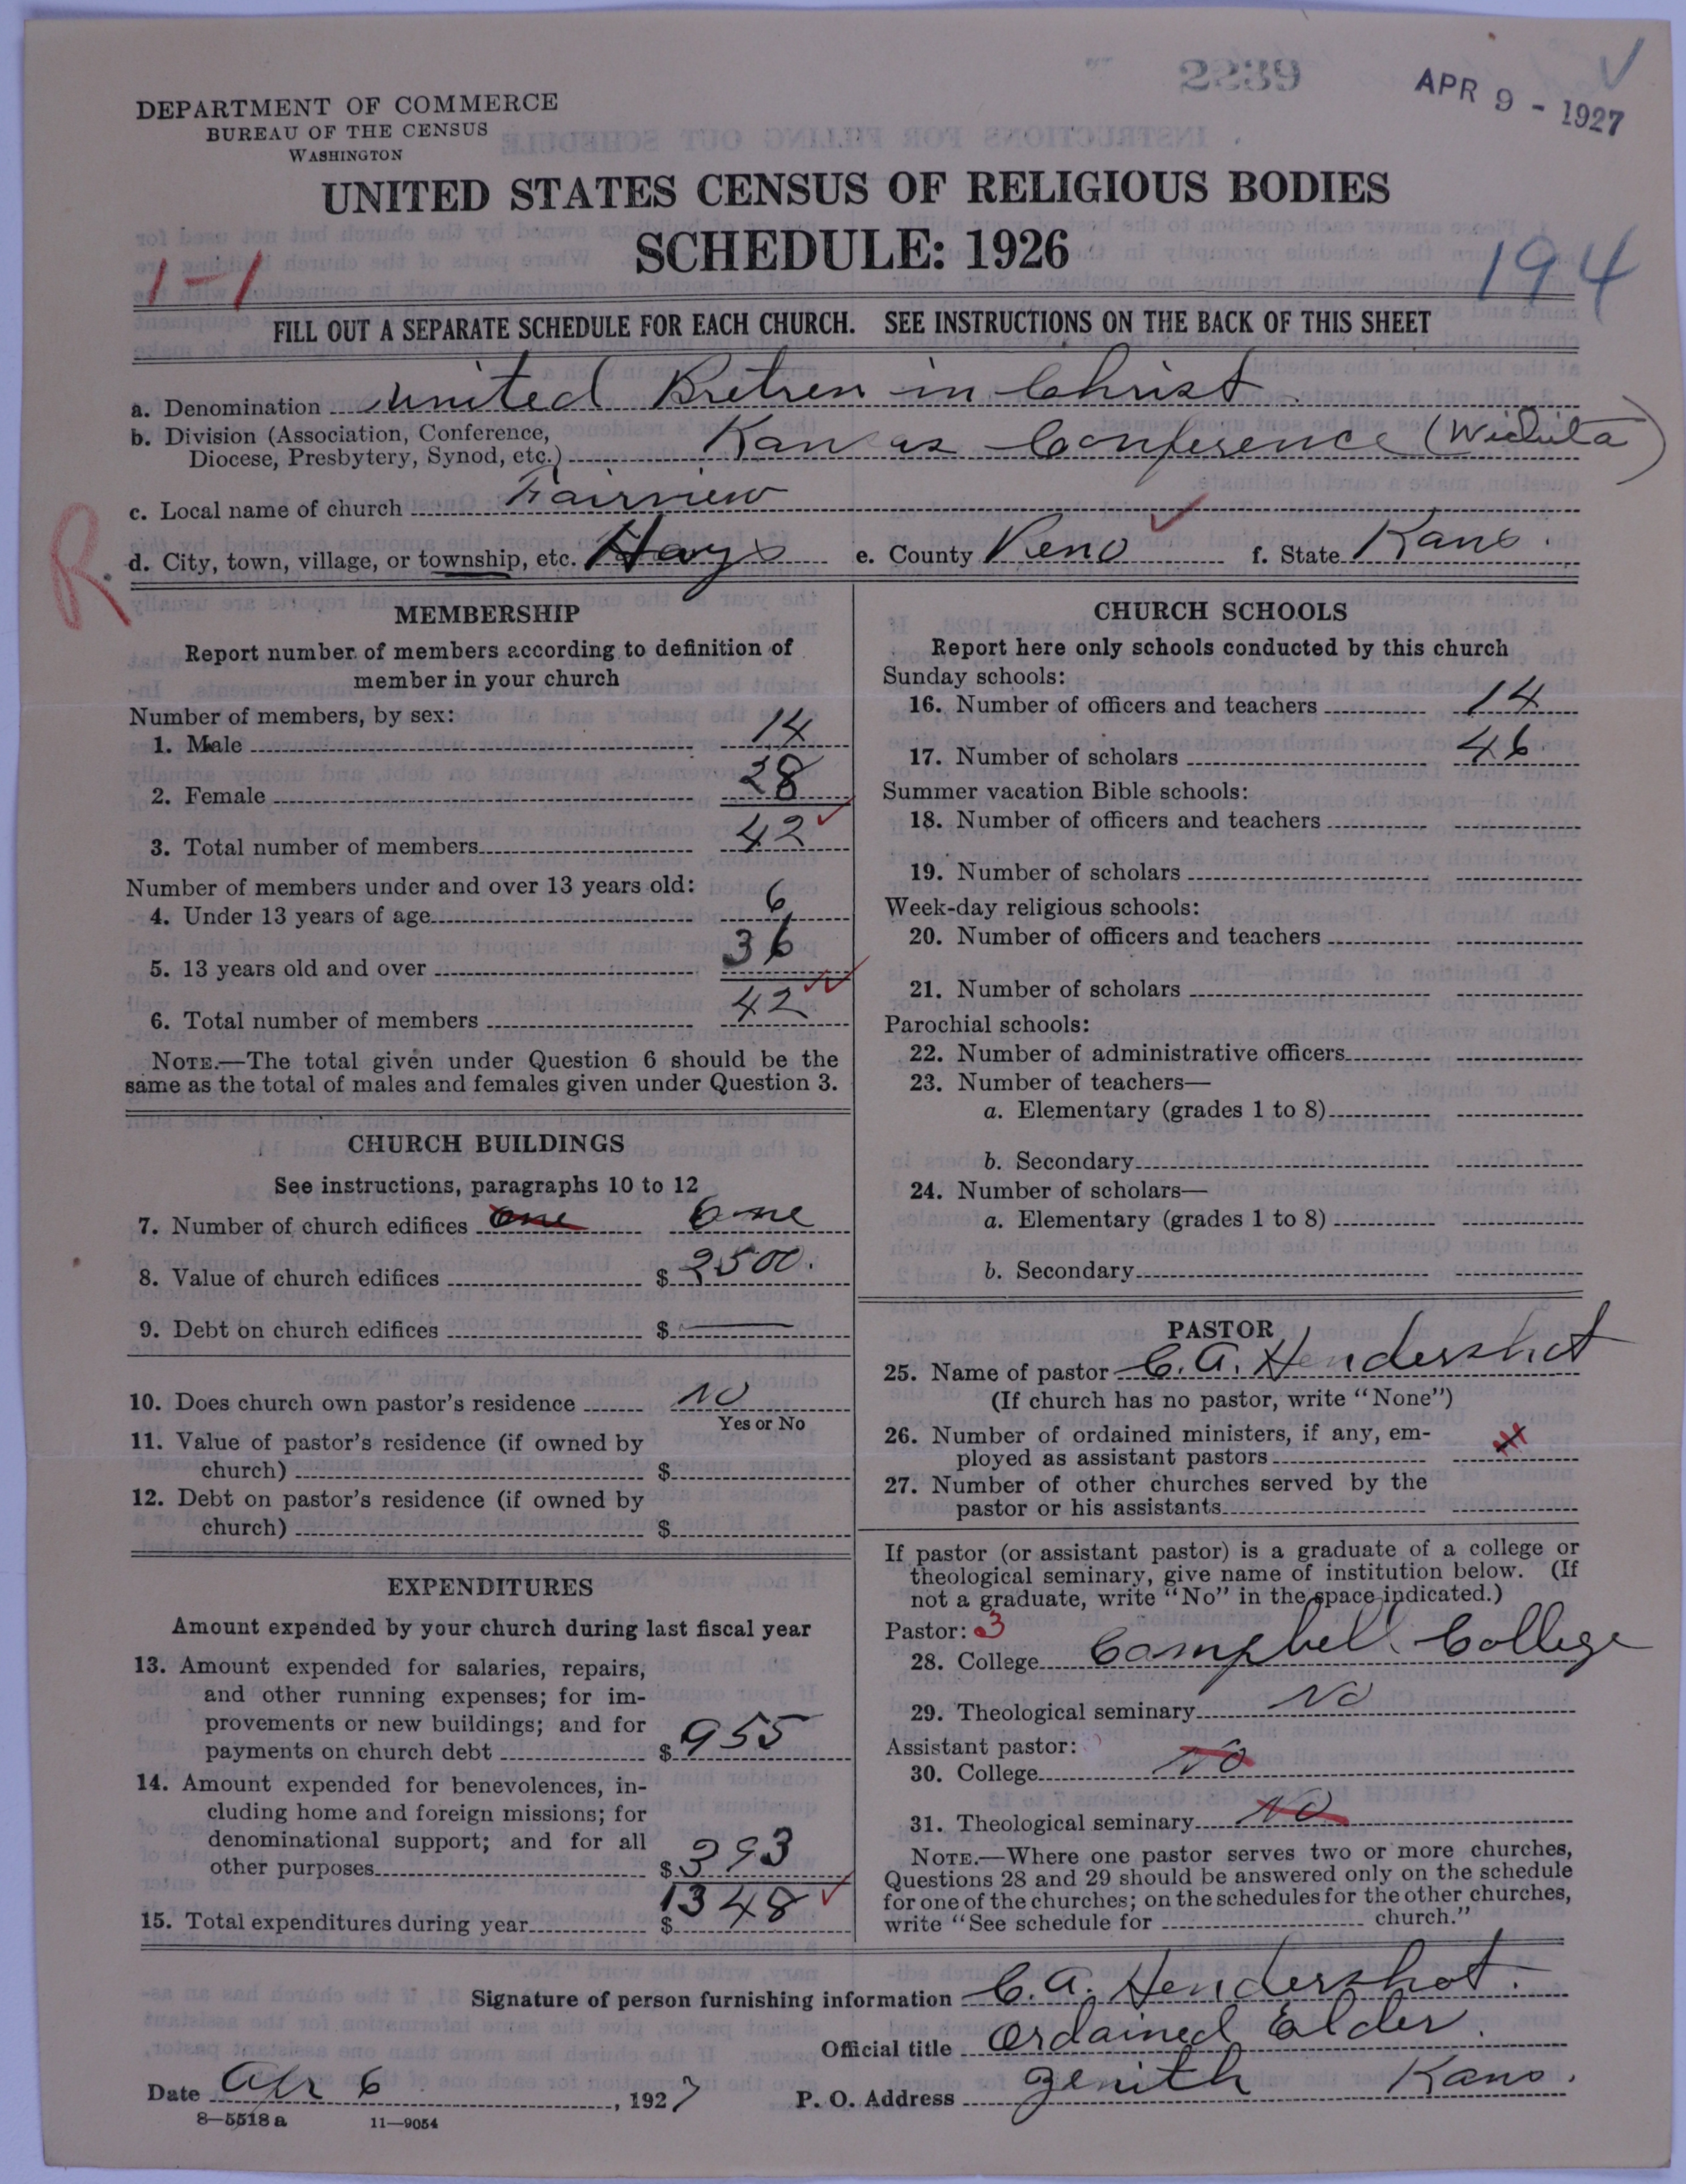 2239
APR 9 - 1927
DEPARTMENT OF COMMERCE
BUREAU OF THE CENSUS
WASHINGTON
UNITED STATES CENSUS OF RELIGIOUS BODIES
SCHEDULE: 1926
1-1
194
FILL OUT A SEPARATE SCHEDULE FOR EACH CHURCH. SEE INSTRUCTIONS ON THE BACK OF THIS SHEET
a. Denomination United Bretren in Christ
b. Division (Association, Conference, Diocese, Presbytery, Synod, etc.) Kansas Conference (Wichita)
c. Local name of church Fairview
R
d. City, town, village, or township, etc. Hays e. County Reno f. State Kans.
MEMBERSHIP
Report number of members according to definition of
member in your church
Number of members, by sex:
1. Male 14
2. Female 28
3. Total number of members 42
Number of members under and over 13 years old:
4. Under 13 years of age 6
5. 13 years old and over 36
6. Total number of members 42
NOTE.—The total given under Question 6 should be the
same as the total of males and females given under Question 3.
CHURCH BUILDINGS
See instructions, paragraphs 10 to 12
7. Number of church edifices one One
8. Value of church edifices $ 2500.
9. Debt on church edifices $ —
10. Does church own pastor's residence No
Yes or No
11. Value of pastor's residence (if owned by
church) $
12. Debt on pastor's residence (if owned by
church) $
EXPENDITURES
Amount expended by your church during last fiscal year
13. Amount expended for salaries, repairs,
and other running expenses; for im-
provements or new buildings; and for
payments on church debt $ 955
14. Amount expended for benevolences, in-
cluding home and foreign missions; for
denominational support; and for all
other purposes $ 393
15. Total expenditures during year $ 1348
CHURCH SCHOOLS
Report here only schools conducted by this church
Sunday schools:
16. Number of officers and teachers 14
17. Number of scholars 46
Summer vacation Bible schools:
18. Number of officers and teachers
19. Number of scholars
Week-day religious schools:
20. Number of officers and teachers
21. Number of scholars
Parochial schools:
22. Number of administrative officers
23. Number of teachers—
a. Elementary (grades 1 to 8)
b. Secondary
24. Number of scholars—
a. Elementary (grades 1 to 8)
b. Secondary
PASTOR
25. Name of pastor C. A. Hendershot
(If church has no pastor, write "None")
26. Number of ordained ministers, if any, em-
ployed as assistant pastors
27. Number of other churches served by the
pastor or his assistants
If pastor (or assistant pastor) is a graduate of a college or
theological seminary, give name of institution below. (If
not a graduate, write "No" in the space indicated.)
Pastor: 3
28. College Campbell College
29. Theological seminary No
Assistant pastor:
30. College No
31. Theological seminary No
NOTE.—Where one pastor serves two or more churches,
Questions 28 and 29 should be answered only on the schedule
for one of the churches; on the schedules for the other churches,
write "See schedule for church."
Signature of person furnishing information C. A. Hendershot.
Official title Ordained Elder.
Date Apr 6, 1927 P. O. Address Zenith Kans.
8—5518 a 11—9054